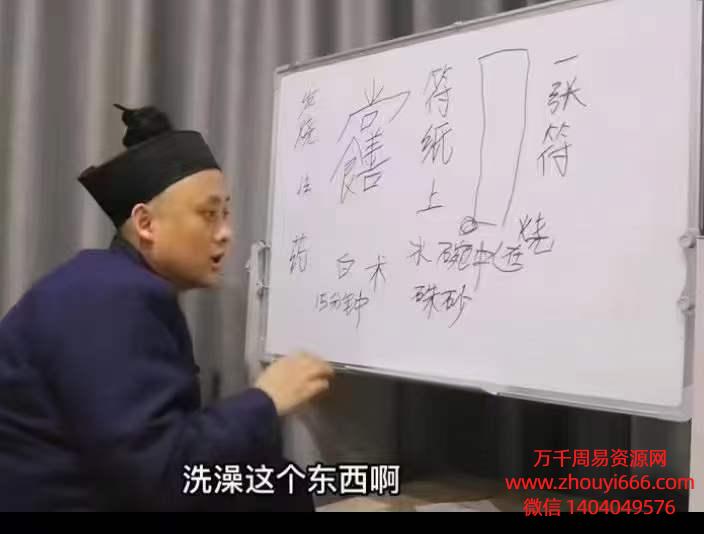 发烧
符纸上
一张符
药
白术
水碗中
烧
15分钟
珠砂
洗澡这个东西啊
万千周易资源网
www.zhouyi666.com
微信 1404049576